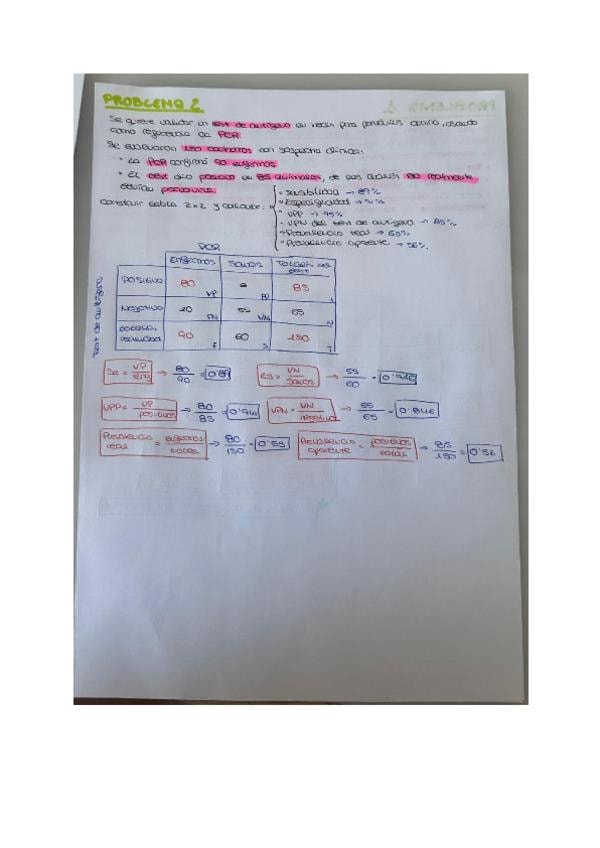 PROBLEMA 2
Se quiere validar un test de antígeno en heces para parvovirus canino, usando
como referencia la PCR.
Se evaluaron 150 cachorros con sospecha clínica:
• La PCR confirmó 90 enfermos
• El test dio positivo en 85 animales, de los cuales 80 realmente
tenían parvovirus.
Construir tabla 2x2 y calcular:
• Sensibilidad → 89%
• Especificidad →
• VPP →
• VPN del test de antígeno →
• Prevalencia real →
• Prevalencia aparente → 56%.
PCR
ENFERMOS SANOS
Test de antígeno
POSITIVO 80 VP FP 85
NEGATIVO 10 FN 55 VN 65
90 60 150
Se = VP → 80/90 = 0'89
ES = VN/SANOS → 55/60 =
VPP = VP/POSITIVOS → 80/85 = 0'941
VPN = VN → 55/65 = 0'846
PREVALENCIA REAL = → /150 = 0'53
PREVALENCIA APARENTE = POSITIVOS/ → 85/150 = 0'56